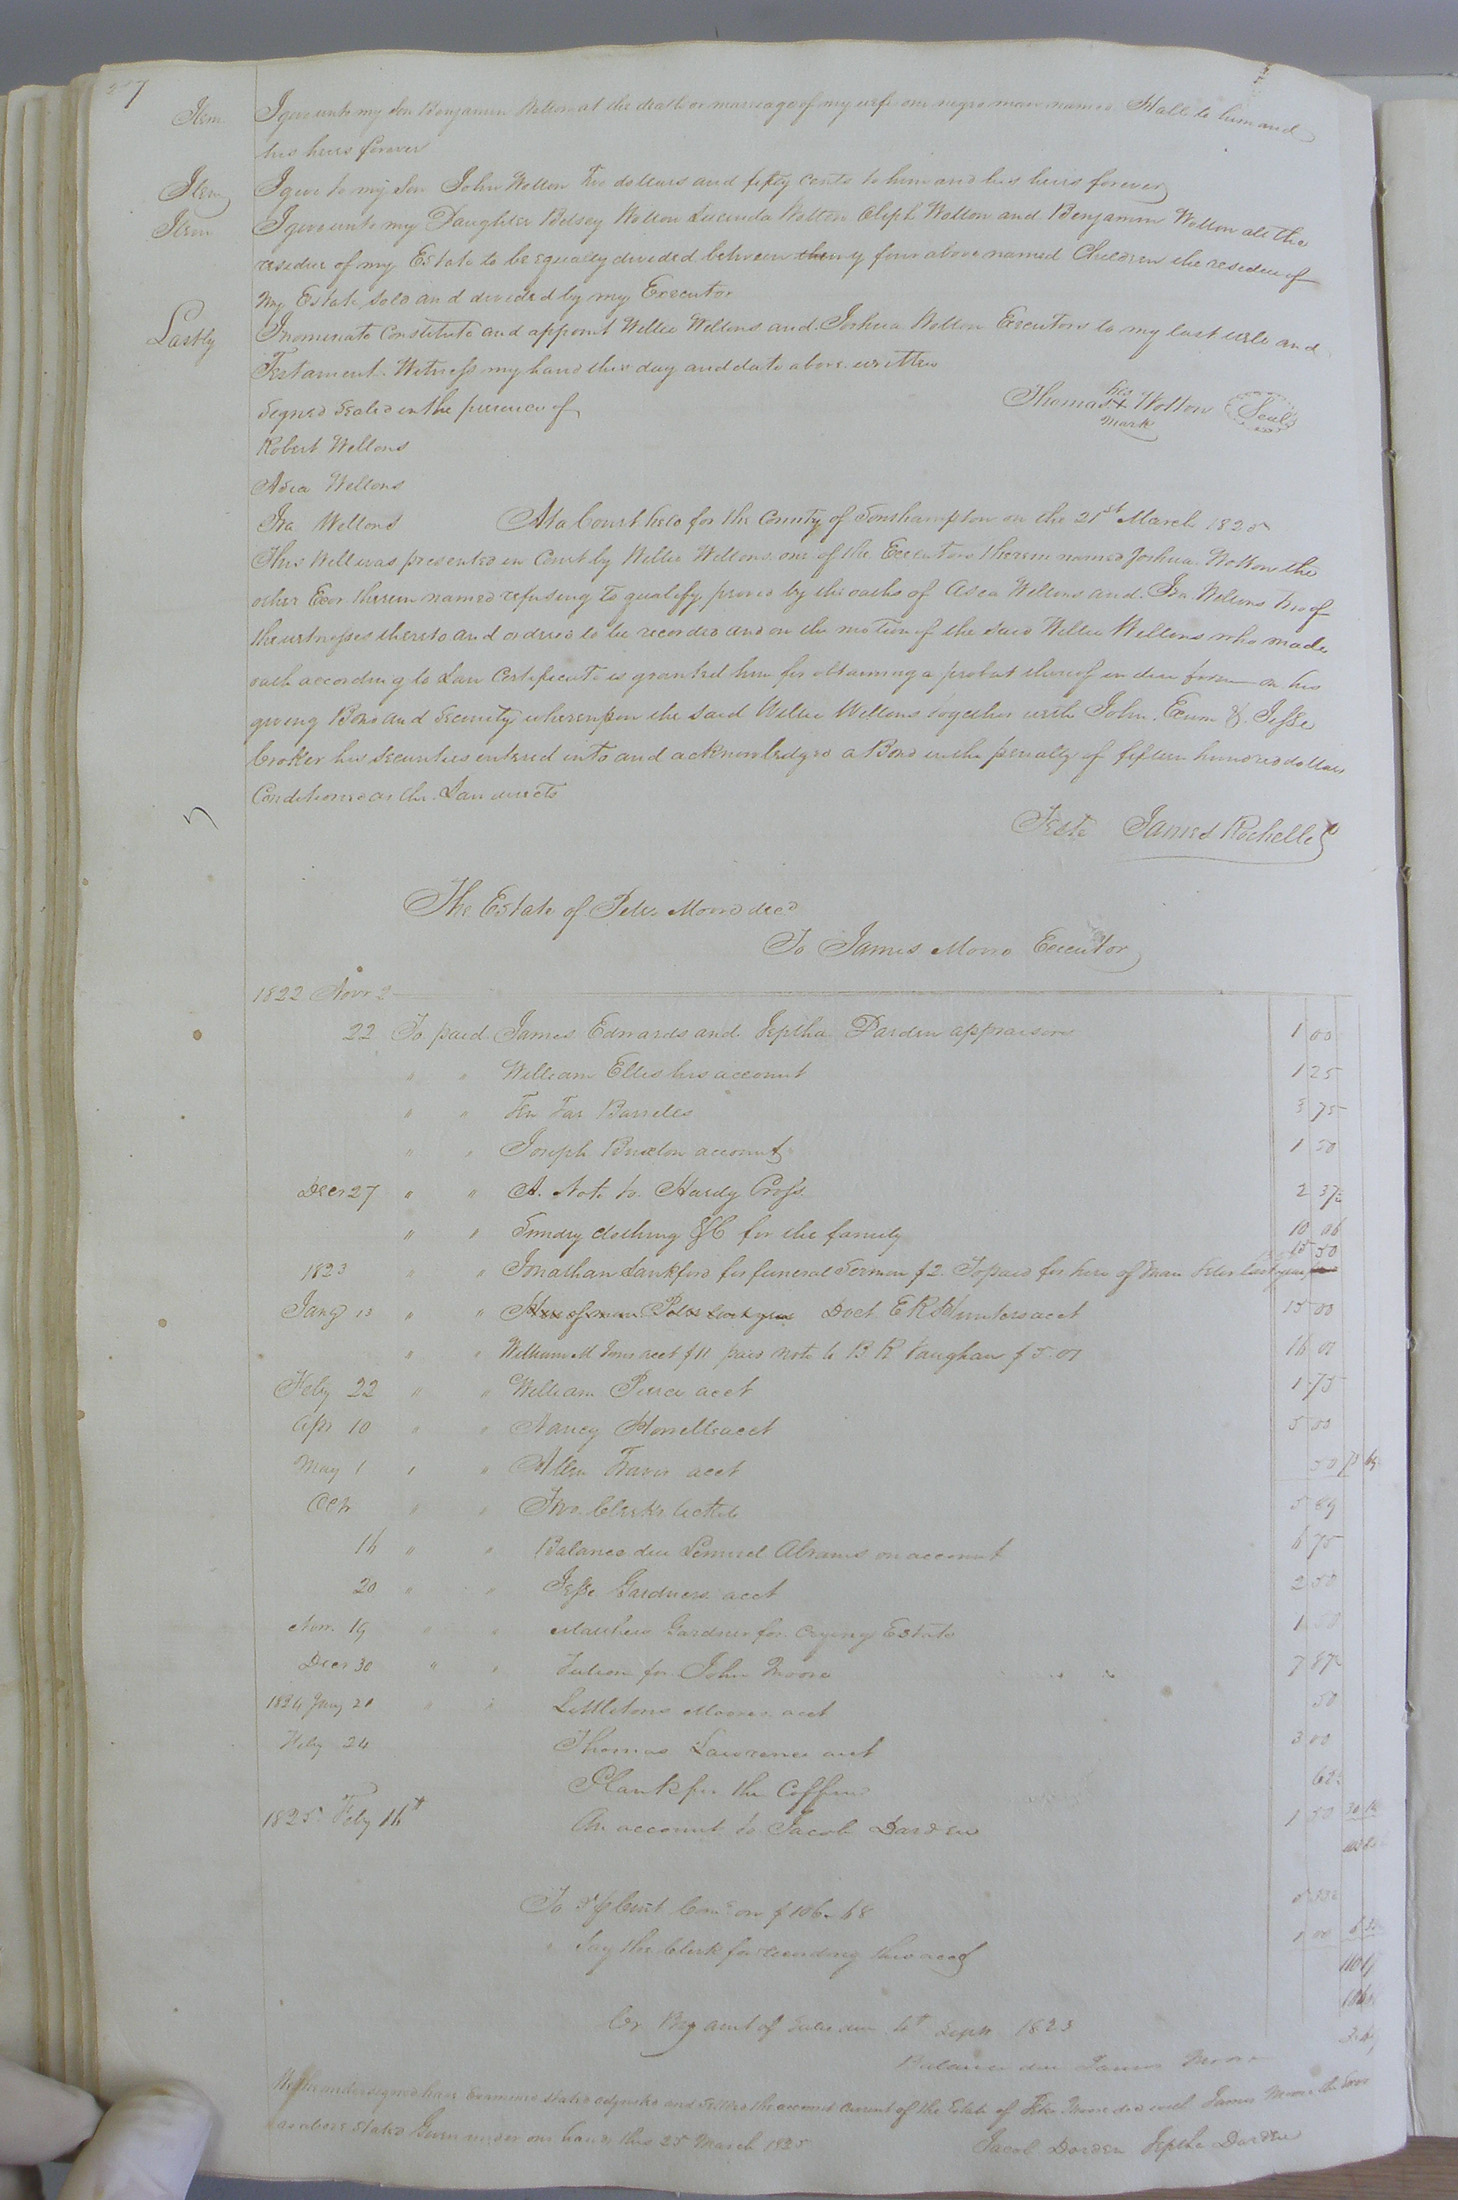 Item I give unto my Son Benjamin Wotton at the death or marriage of my wife one negro man named Hall to him and
his heirs forever
Item I give to my Son John Wotton Two dollars and fifty cents to him and his heirs forever
Item I give unto my Daughter Betsey Wotton Lucinda Wotton Eliph Wotton and Benjamin Wotton all the
residue of my Estate to be equally divided between my four above named Children the residue of
my Estate sold and divided by my Executor
Lastly I nominate Constitute and appoint Willie Wellons and Joshua Wotton Executors to my last will and
Testament. Witness my hand this day and date above written
Signed Sealed in the presence of
Thomas his + mark Wotton Seal
Robert Wellons
Asea Wellons
Ira Wellons At a Court held for the County of Southampton on the 21st March 1825
This Will was presented in Court by Willie Wellons one of the Executors therein named Joshua Wotton the
other Exor therein named refusing to qualify, proved by the oaths of Asea Wellons and Ira Wellons two of
the witnesses thereto and ordered to be recorded and on the motion of the said Willie Wellons who made
oath according to Law Certificate is granted him for obtaining a probat thereof in due form on his
giving Bond and Security whereupon the said Willie Wellons together with John Exum & Jesse
Croker his Securities entered into and acknowledged a Bond in the penalty of fifteen hundred dollars
Conditioned as the Law directs
Teste James Rochelle
The Estate of Peter Moore decd
To James Moore Executor
1822 Novr 2
22 To paid James Edwards and Jeptha Darden appraisors 1 00
" " William Ellis his account 1 25
" " Ten Tar Barrels 3 75
" " Joseph Buxton account 1 50
Decr 27 " " A Note to Hardy Cross 2 37½
" " Sundry clothing &C for the family 10 06
15 50
1823 " " Jonathan Lankford for funeral Sermon $2. To paid for hire of man Peter last year
Jany 13 " " Hire of man Peter last year Doct E R Hunters acct 15 00
" " William M Jones acct $11 paid note to B R Vaughan $5.07 16 07
Feby 22 " " William Pearce acct 1 75
Apr 10 " " Nancy Howells acct 5 00
May 1 " " Allen Travis acct 50
Octr " " Two Clerks tickets 5 89
16 " " Balance due Lemuel Abrams on account 6 75
20 " " Jesse Gardners acct 2 50
Novr 19 " " Matthew Gardner for Crying Estate 1 50
Decr 30 " " Tuition for John Moore 7 87½
1824 Jany 20 " " Littletons Moores acct 50
Feby 24 Thomas Lawrence acct 3 00
Plank for the Coffin 62½
1825 Feby 16th An account to Jacob Darden 1 50
To 5 pr Cent Com on $106.68
" Pay the Clerk for recording this acct 1 00
Cr By amt of Sales due 4th Sepr 1823
Balance due James Moore
We the undersigned have Examined stated adjusted and settled the account current of the Estate of Peter Moore decd with James Moore the Exor
as above stated Given under our hands this 25 March 1825
Jacob Darden Jeptha Darden